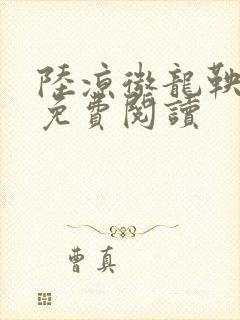 陸涼微龍鞅
免費閱讀
曹真